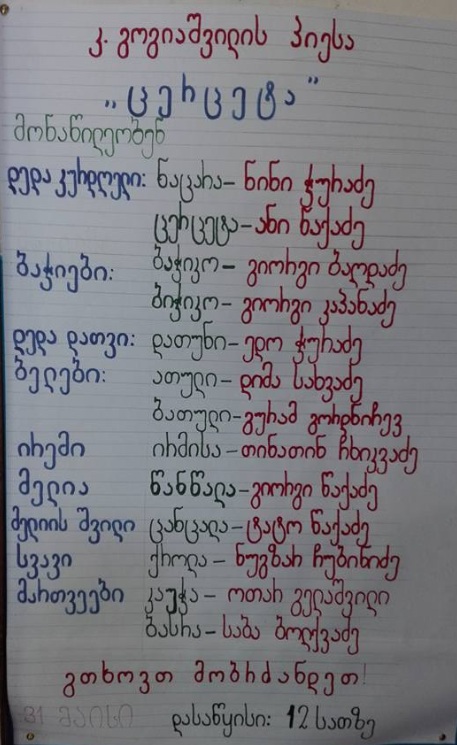 კ. გოგიაშვილის პიესა
„ცერცეტა"
მონაწილეობენ
დედა კურდღელი: ნაცარა – ნინი ჭურაძე
ცერცეტა – ანი წაქაძე
ბაჭიები: ბაჭიკო – გიორგი ბაღდაძე
ბიჭიკო – გიორგი კაპანაძე
დედა დათვი: დათუნი – ედო ჭურაძე
ბელები: ათული – დიმა სახვაძე
ბათული – გურამ გორდნიჩევ
ირემი ირმისა – თინათინ ჩხიკვაძე
მელია წანწალა – გიორგი წაქაძე
მელიის შვილი ცანცალა – ტატო წაქაძე
სვავი ქროლა – ნუგზარ ჩუბინიძე
მართვეები კაუჭა – ოთარ გელაშვილი
ბასრა – საბა ბოლქვაძე
გთხოვთ მობრძანდეთ!
31 მაისი დასაწყისი: 12 სათზე